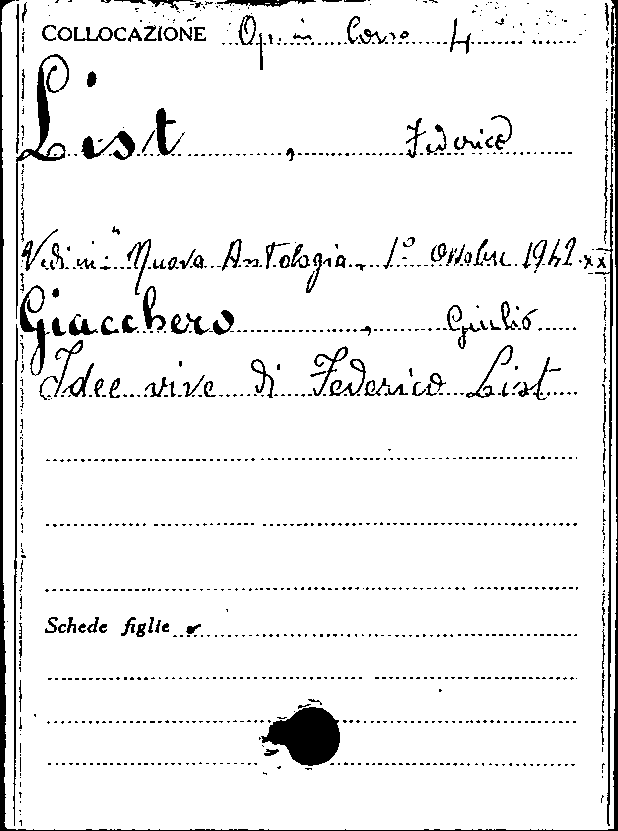 COLLOCAZIONE Op. in Corso 4
List, Federico
Vedi in: "Nuova Antologia. 1° Ottobre 1942.XX
Giacchero, Giulio
Idee vive di Federico List
Schede figlie